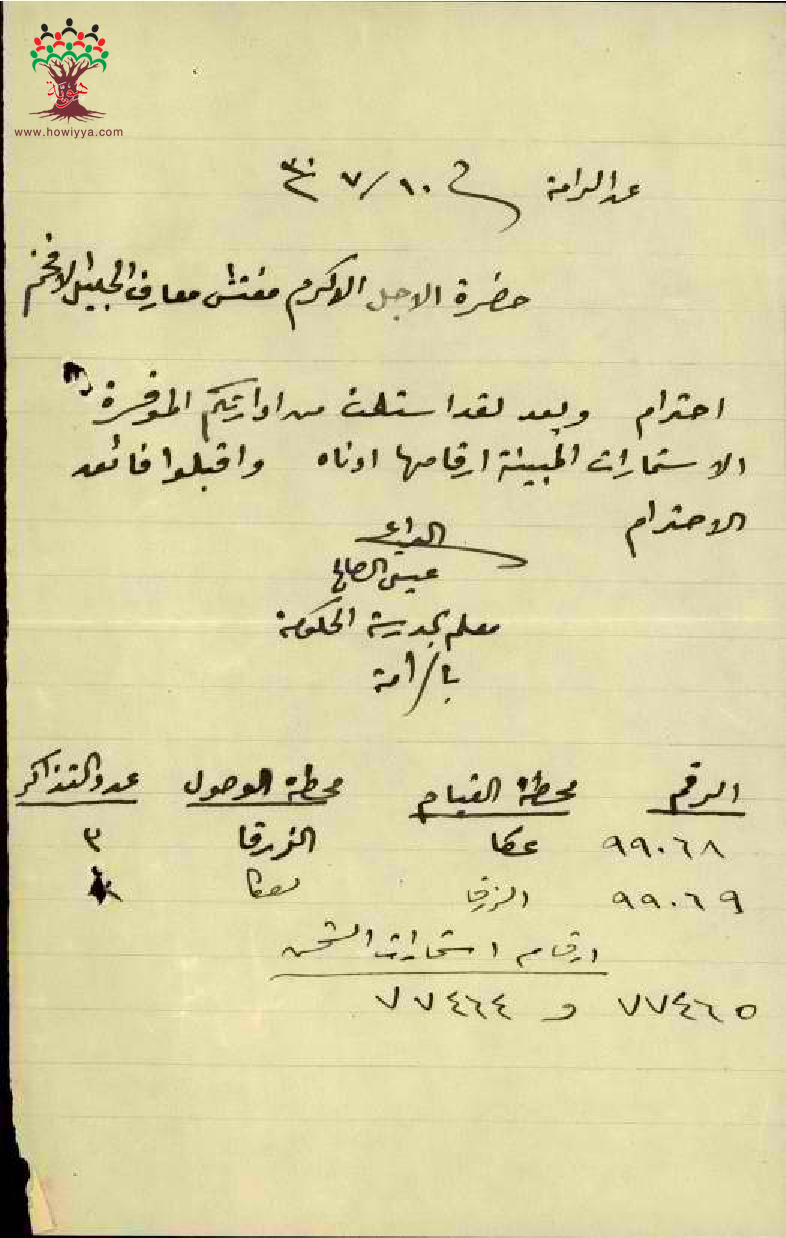 هوية
www.howiyya.com
عن الرامة في ١٠/٧/٣٠
حضرة الاجل الاكرم مفتش معارف الجليل الافخم
احترام وبعد لقد استلمت من ادارتكم الموقرة
الاستمارات المبينة ارقامها ادناه واقبلوا فائق
الاحترام
الداعي
عيسى الصالح
معلم بمدرسة الحكومة
بالرامة
الرقم محطة القيام محطة الوصول عدد التذاكر
٩٩٠٦٨ عكا الزرقا ٣
٩٩٠٦٩ الزرقا عكا
ارقام استمارات الشحن
٧٧٤٦٥ و ٧٧٤٦٤